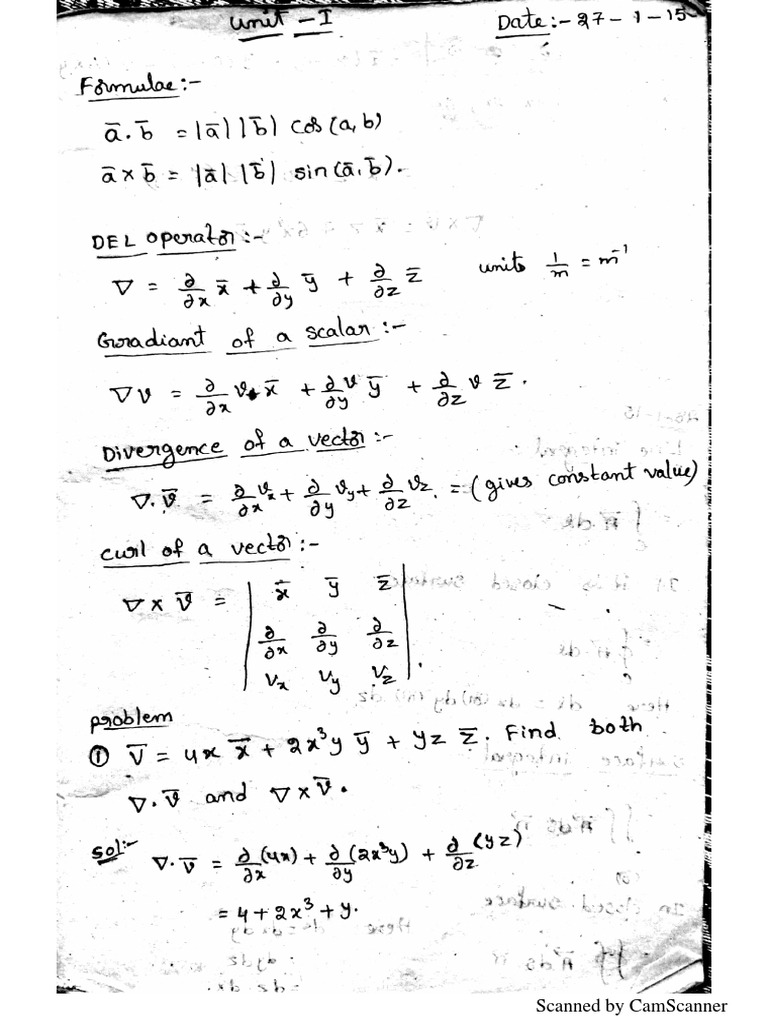 Unit - I
Date:- 27-1-15
Formulae:-
a̅.b̅ = |a̅| |b̅| cos(a,b)
a̅×b̅ = |a̅| |b̅| sin(a̅,b̅).
DEL operator:-
∇ = ∂/∂x x̅ + ∂/∂y y̅ + ∂/∂z z̅ units 1/m = m⁻¹
Gradiant of a scalar:-
∇v = ∂/∂x v x̅ + ∂/∂y v y̅ + ∂/∂z v z̅.
Divergence of a vector:-
∇.v̅ = ∂/∂x vx + ∂/∂y vy + ∂/∂z vz. = (gives constant value)
curl of a vector:-
∇×v̅ = | x̅ y̅ z̅
∂/∂x ∂/∂y ∂/∂z
Vx Vy Vz |.
problem
① V̅ = 4x x̅ + 2x³y y̅ + yz z̅. Find both
∇.v̅ and ∇×v̅.
Sol:- ∇.v̅ = ∂/∂x (4x) + ∂/∂y (2x³y) + ∂/∂z (yz)
= 4+2x³+y.
Scanned by CamScanner